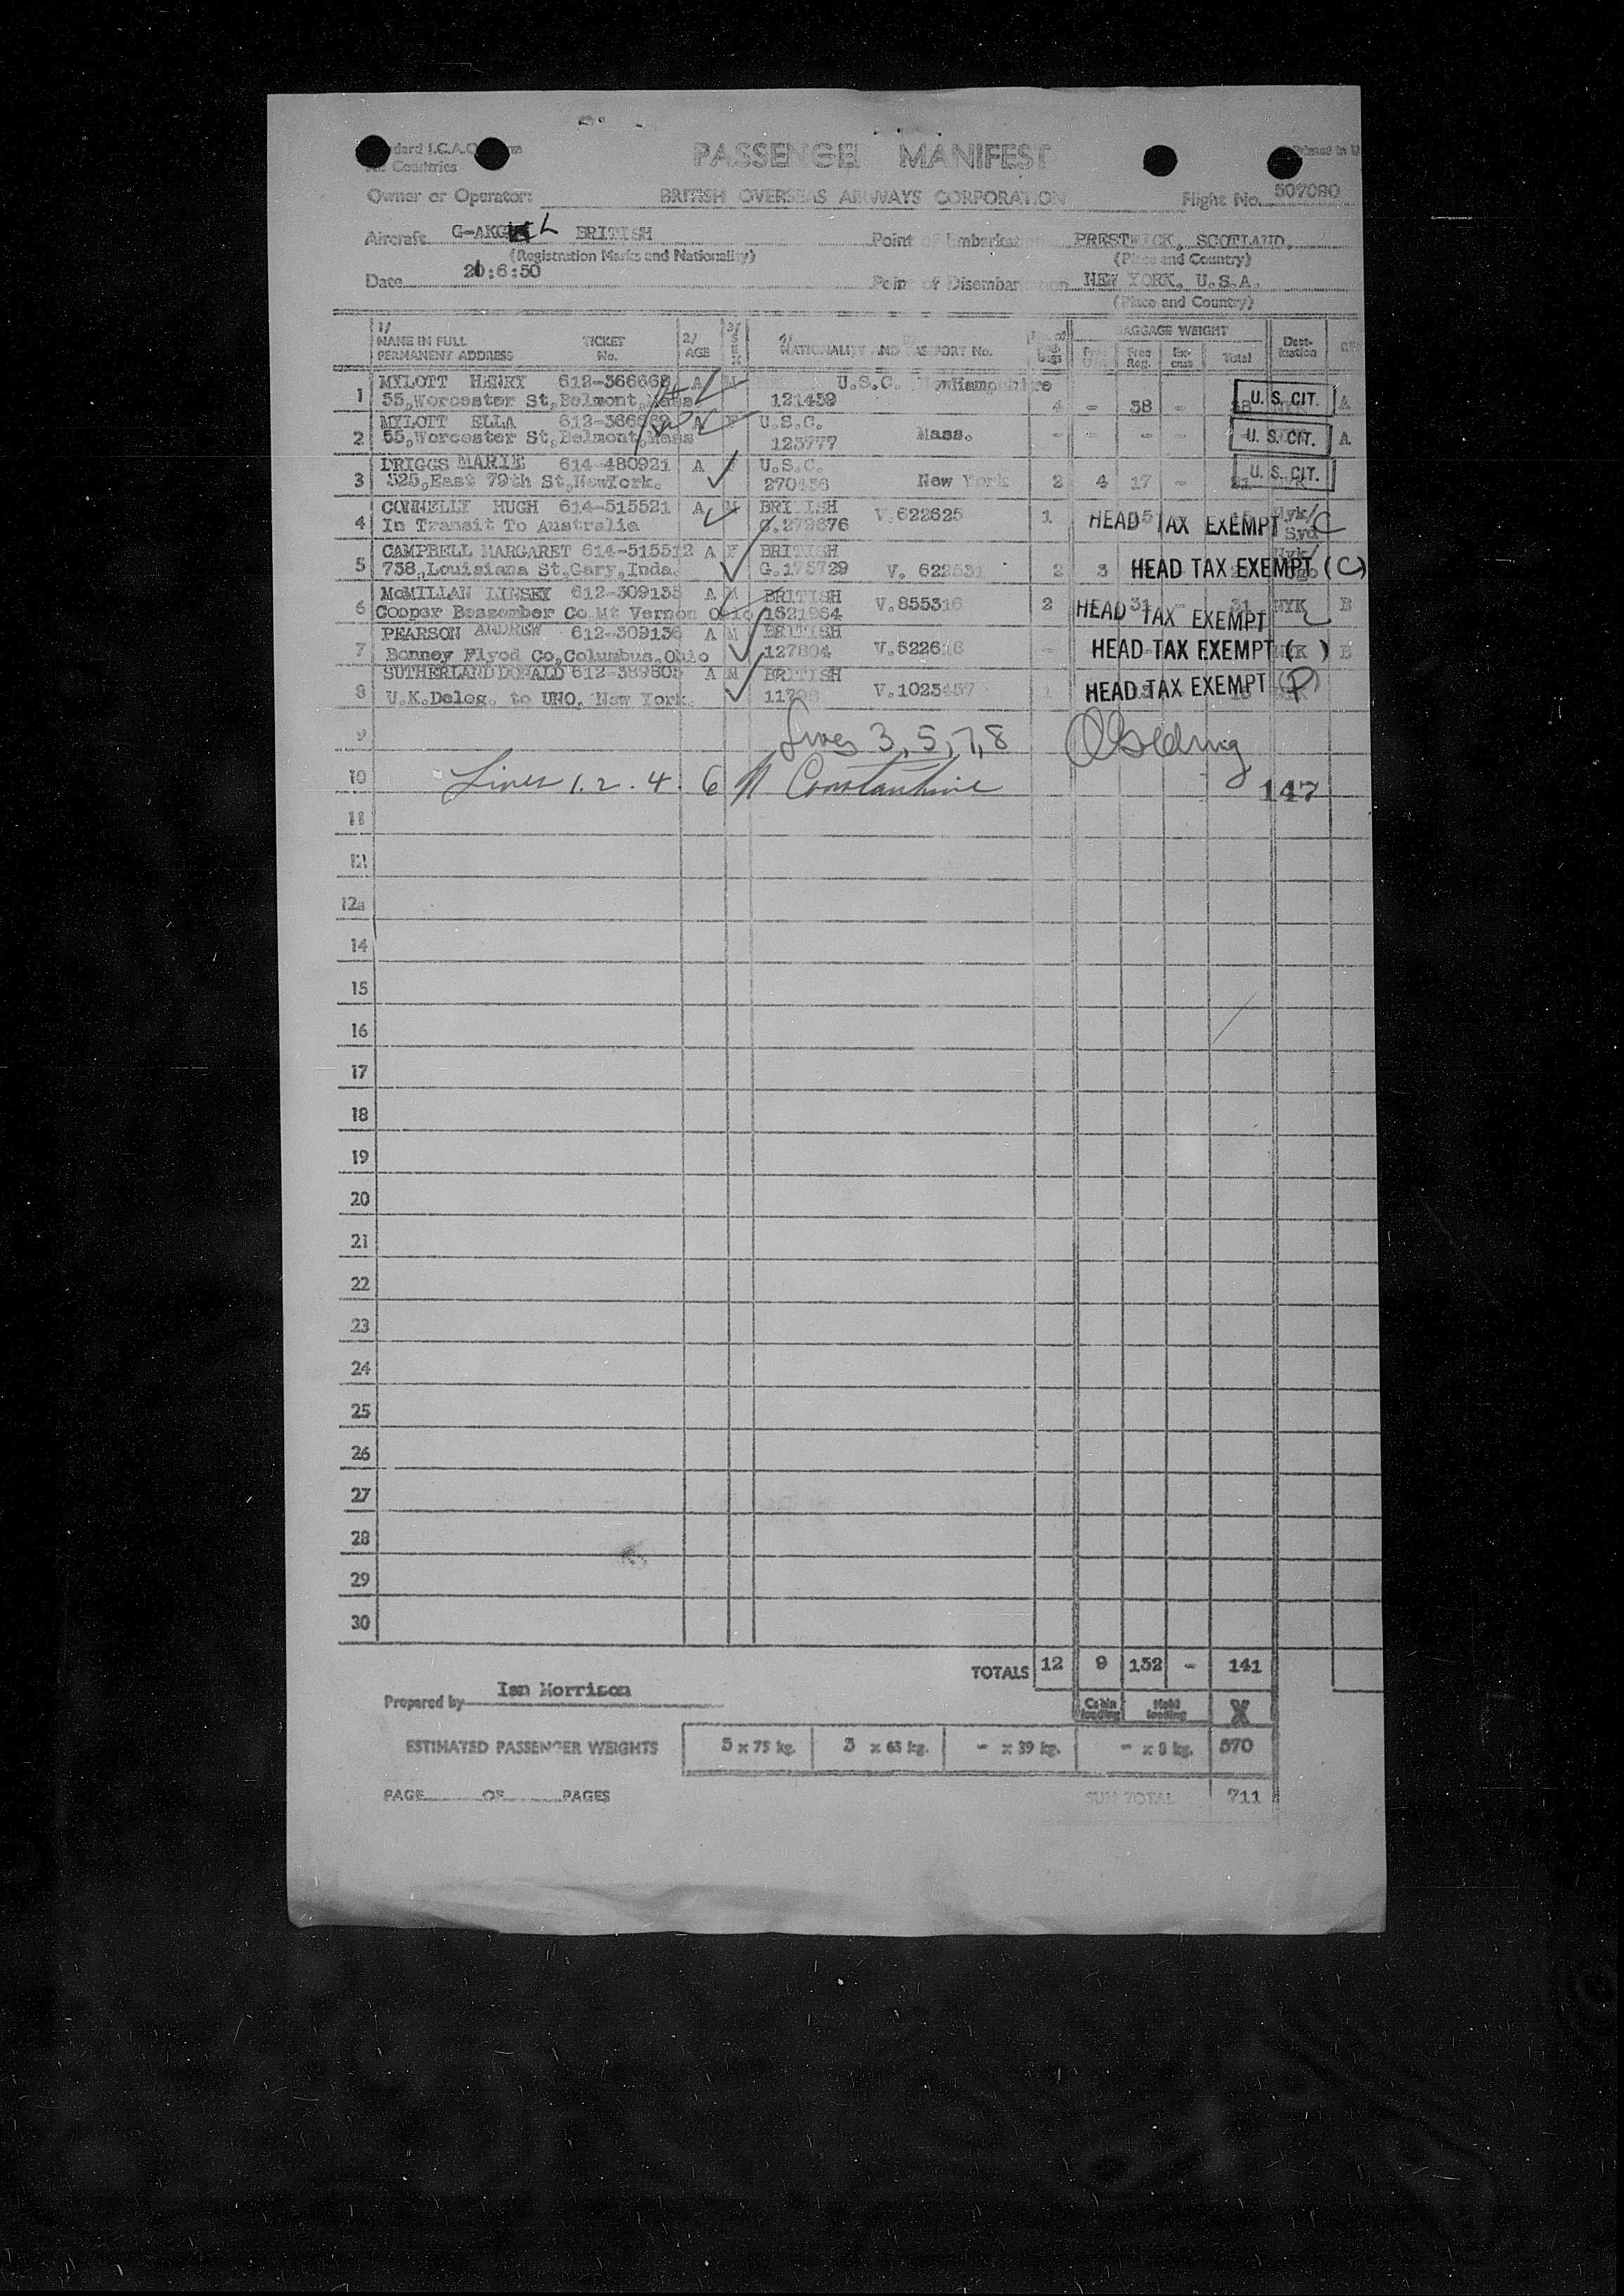 PASSENGER MANIFEST
Countries
Owner or Operator: BRITISH OVERSEAS AIRWAYS CORPORATION Flight No. 507080
Aircraft G-AKG L BRITISH Point of Embarkation PRESTWICK, SCOTLAND.
(Registration Marks and Nationality) (Place and Country)
Date 20:6:50 Point of Disembarkation NEW YORK, U.S.A.
(Place and Country)
1/ NAME IN FULL PERMANENT ADDRESS TICKET No. 2/ AGE 3/ SEX NATIONALITY AND PASSPORT No. BAGGAGE WEIGHT Free Reg. Excess Total Destination
1 MYLOTT HENRY 612-366668 A M U.S.C. Newhampshire
55,Worcester St,Belmont,Mass 121439 4 - 38 - U. S. CIT. A
2 MYLOTT ELLA 612-366669 A F U.S.C.
55,Worcester St,Belmont,Mass 123777 Mass. - - - - U. S. CIT. A
3 DRIGGS MARIE 614-480921 A F U.S.C.
325,East 79th St,NewYork. 270436 New York 2 4 17 - 21 U. S. CIT.
4 CONNELLY HUGH 614-515521 A M BRITISH V.622625 1 HEAD TAX EXEMPT Nyk/ C
In Transit To Australia G.272676 Syd
5 CAMPBELL MARGARET 614-515512 A F BRITISH Nyk/
738,Louisiana St,Gary,Inda. G.175729 V. 622531 2 3 HEAD TAX EXEMPT (C)
6 McMILLAN LINSEY 612-309135 A M BRITISH V.855316 2 HEAD TAX EXEMPT 31 - 31 NYK B
Cooper Bessember Co Mt Vernon Ohio 1621964
7 PEARSON ANDREW 612-309136 A M BRITISH
Bonney Flyod Co,Columbus,Ohio 127804 V.6226 8 - HEAD TAX EXEMPT ( ) B
8 SUTHERLAND DONALD 612-389605 A M BRITISH
U.K.Deleg. to UNO, New York. V.1023457 1 HEAD TAX EXEMPT (P)
9 Lines 3, 5, 7, 8
10 Lines 1. 2. 4. 6 N Constantine 147
11
12
12a
14
15
16
17
18
19
20
21
22
23
24
25
26
27
28
29
30
TOTALS 12 9 132 - 141
Prepared by Ian Morrison Cabin loading Hold loading X
ESTIMATED PASSENGER WEIGHTS 5 x 75 kg. 3 x 63 kg. - x 39 kg. - x 8 kg. 570
PAGE OF PAGES SUM TOTAL 711